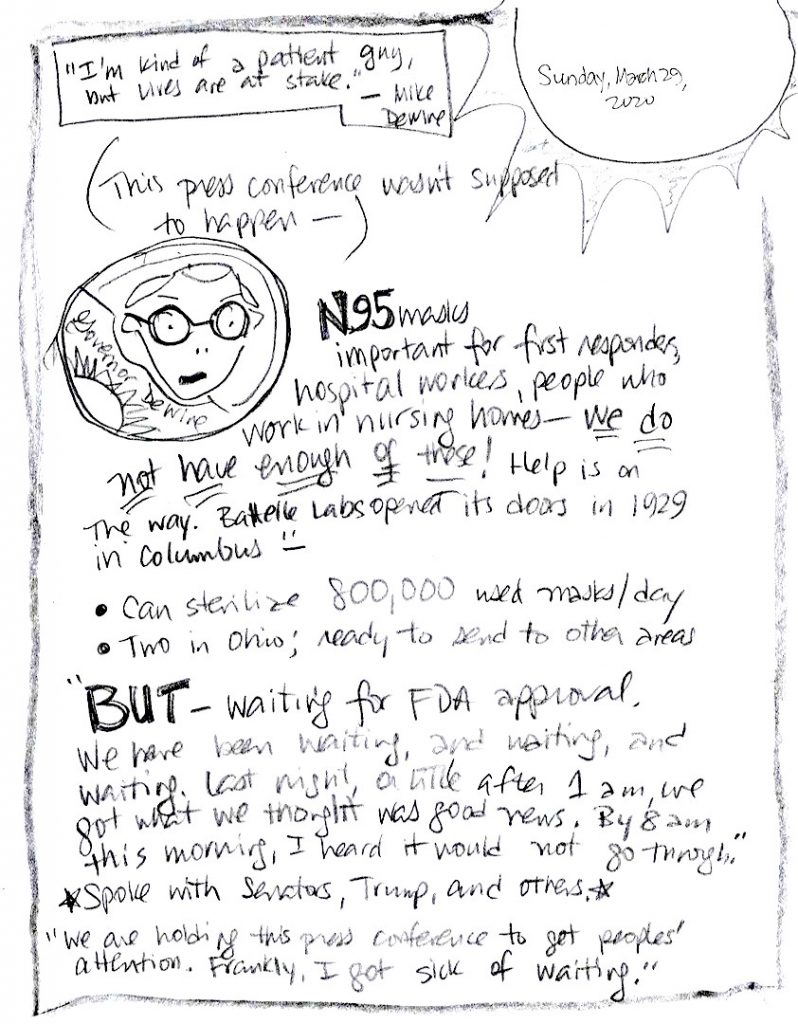 "I'm kind of a patient guy,
but lives are at stake."
— Mike
DeWine
Sunday, March 29,
2020
(This press conference wasn't supposed
to happen —)
Governor DeWine
N95 masks
important for first responders,
hospital workers, people who
work in nursing homes— we do
not have enough of these! Help is on
the way. Battelle Labs opened its doors in 1929
in Columbus —
• Can sterilize 800,000 used masks/day
• Two in Ohio; ready to send to other areas
"BUT — waiting for FDA approval.
We have been waiting, and waiting, and
waiting. Last night, a little after 1 am, we
got what we thought was good news. By 8 am
this morning, I heard it would not go through."
★Spoke with Senators, Trump, and others.★
"We are holding this press conference to get peoples'
attention. Frankly, I got sick of waiting."